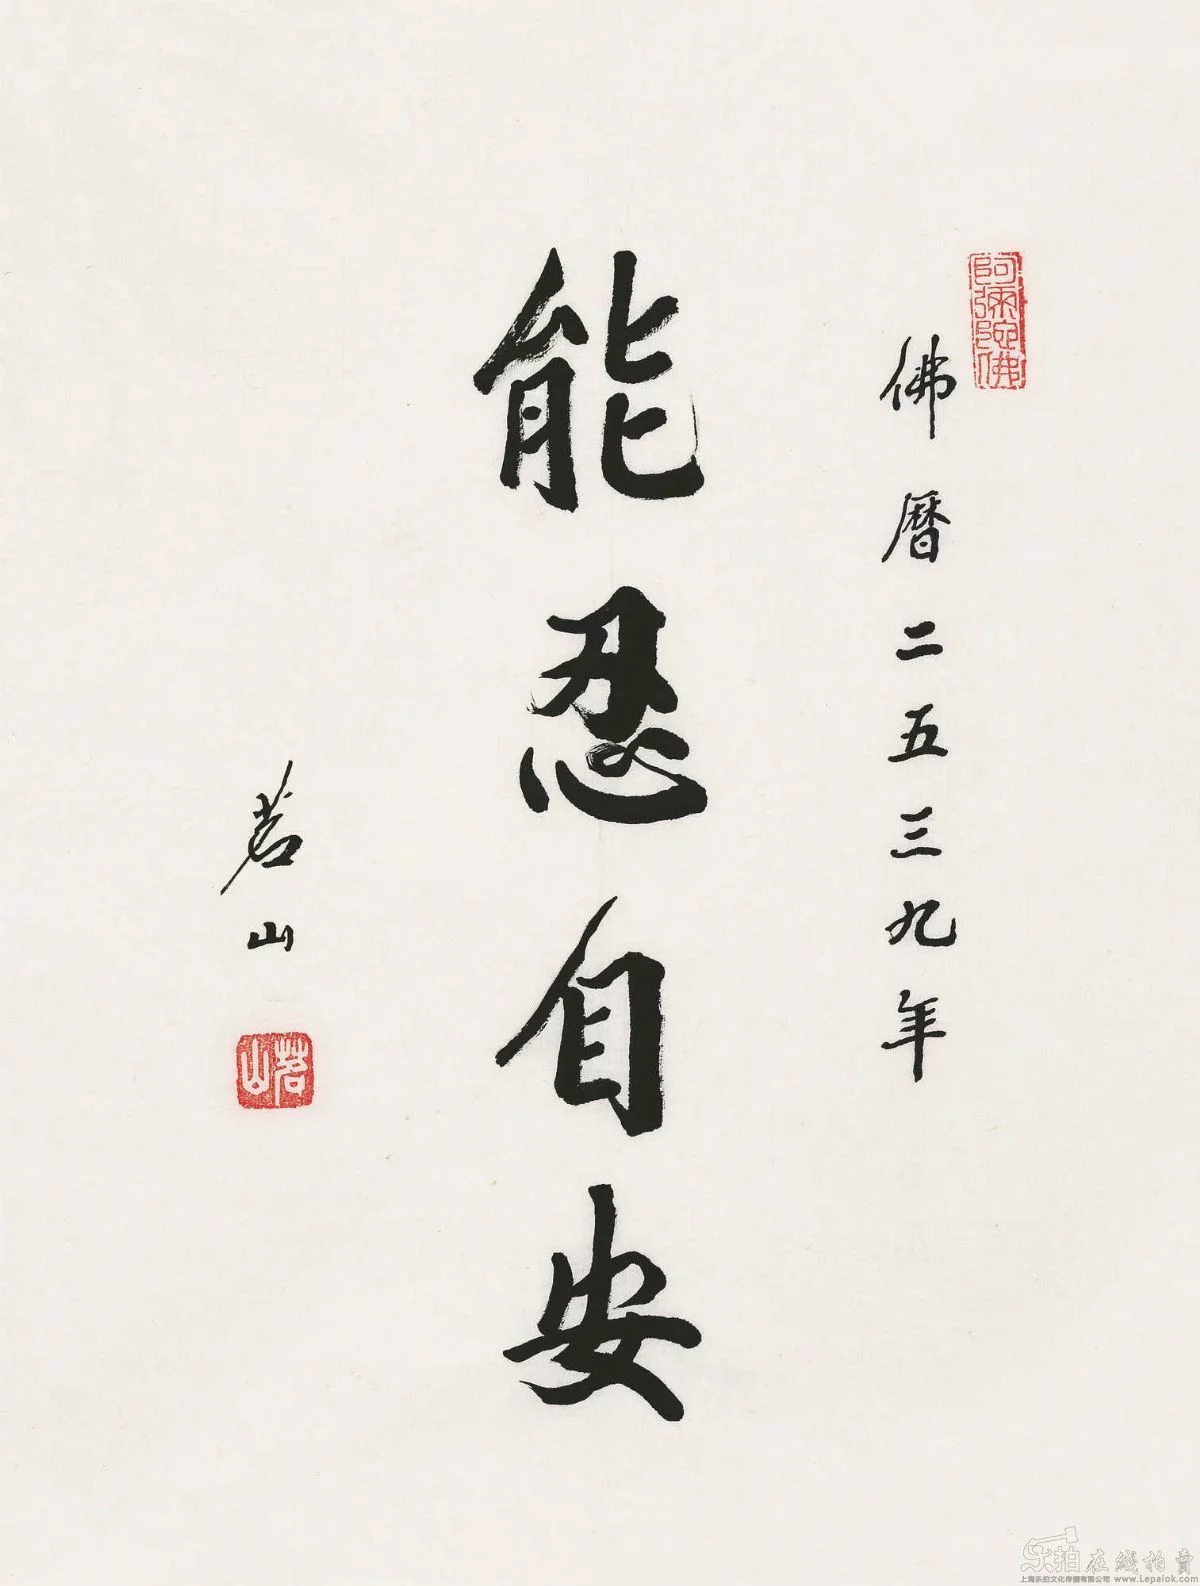 阿彌陀佛
佛曆二五三九年
能忍自安
茗山
茗山
乐拍在线拍賣
上海乐拍文化传播有限公司 www.Lepaiok.com